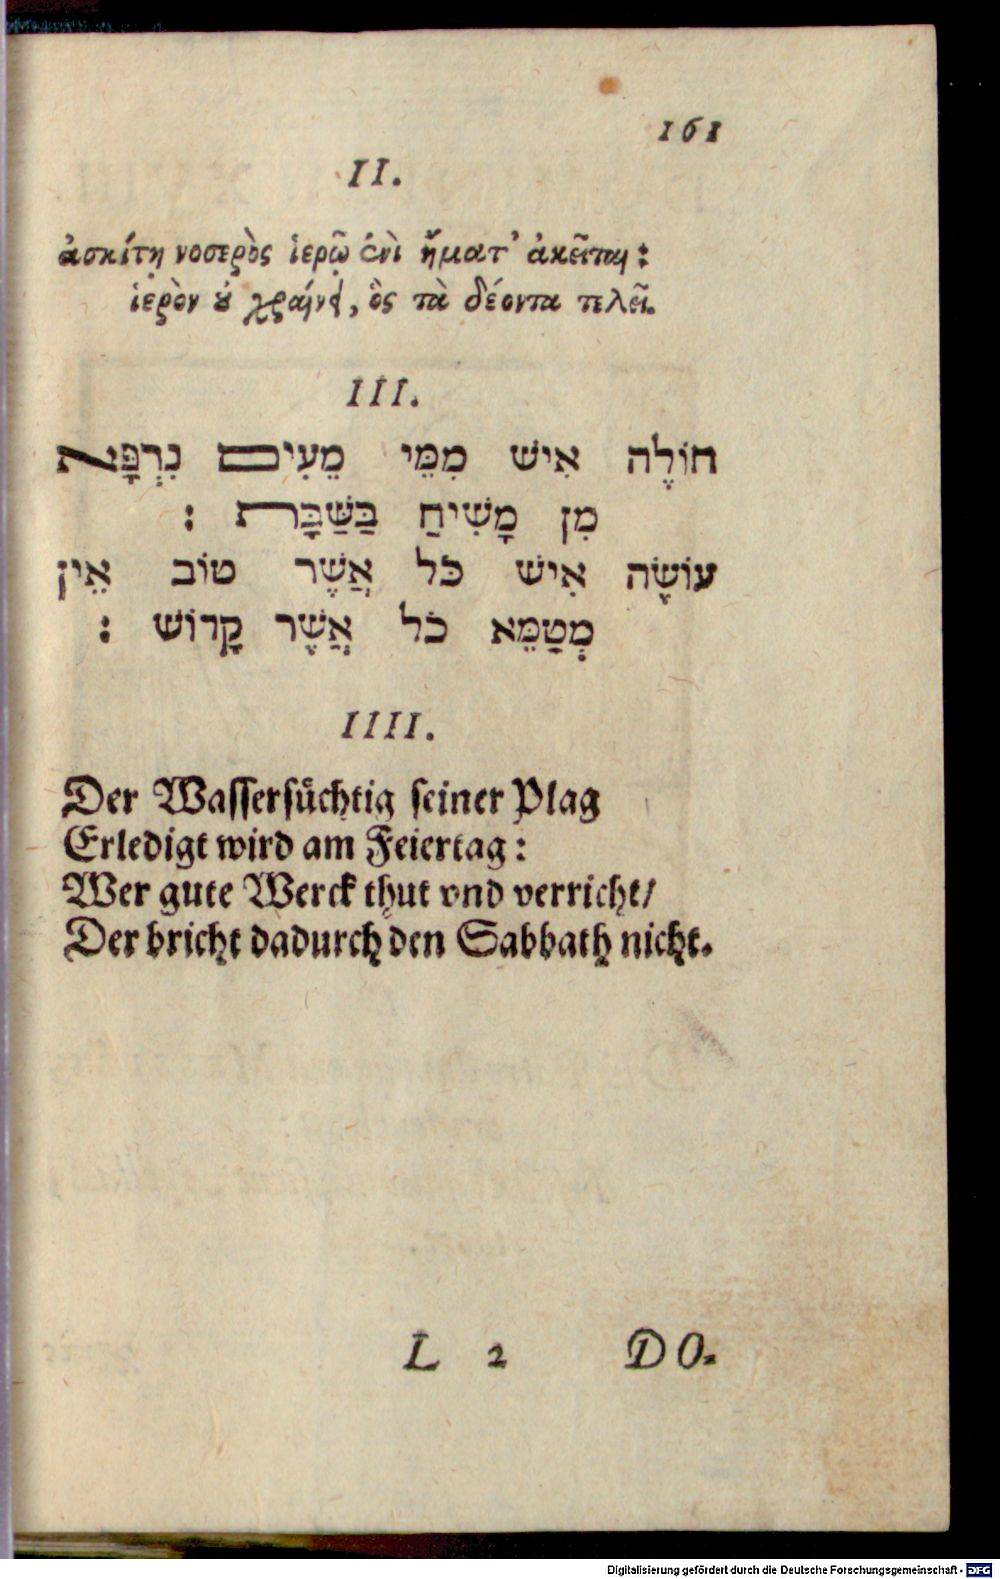 161
II.
ἀσκίτη νοσερὸς ἱερῷ ἐνὶ ἤματ' ἀκεῖται:
ἱερὸν οὐ χραίνει, ὃς τὰ δέοντα τελεῖ.
III.
חוֹלֶה אִישׁ מִמֵּי מֵעִים נִרְפָּא
מִן מָשִׁיחַ בַּשַּׁבָּת :
עוֹשֶׂה אִישׁ כֹּל אֲשֶׁר טוֹב אֵין
מְטַמֵּא כֹּל אֲשֶׁר קָדוֹשׁ :
IIII.
Der Wassersüchtig seiner Plag
Erledigt wird am Feiertag:
Wer gute Werck thut vnd verricht/
Der bricht dadurch den Sabbath nicht.
L 2 DO-
Digitalisierung gefördert durch die Deutsche Forschungsgemeinschaft - DFG